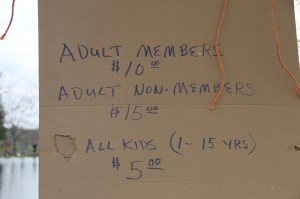 ADULT MEMBERS
$10.00
ADULT NON-MEMBERS
$15.00
ALL KIDS (1-15 YRS)
$5.00